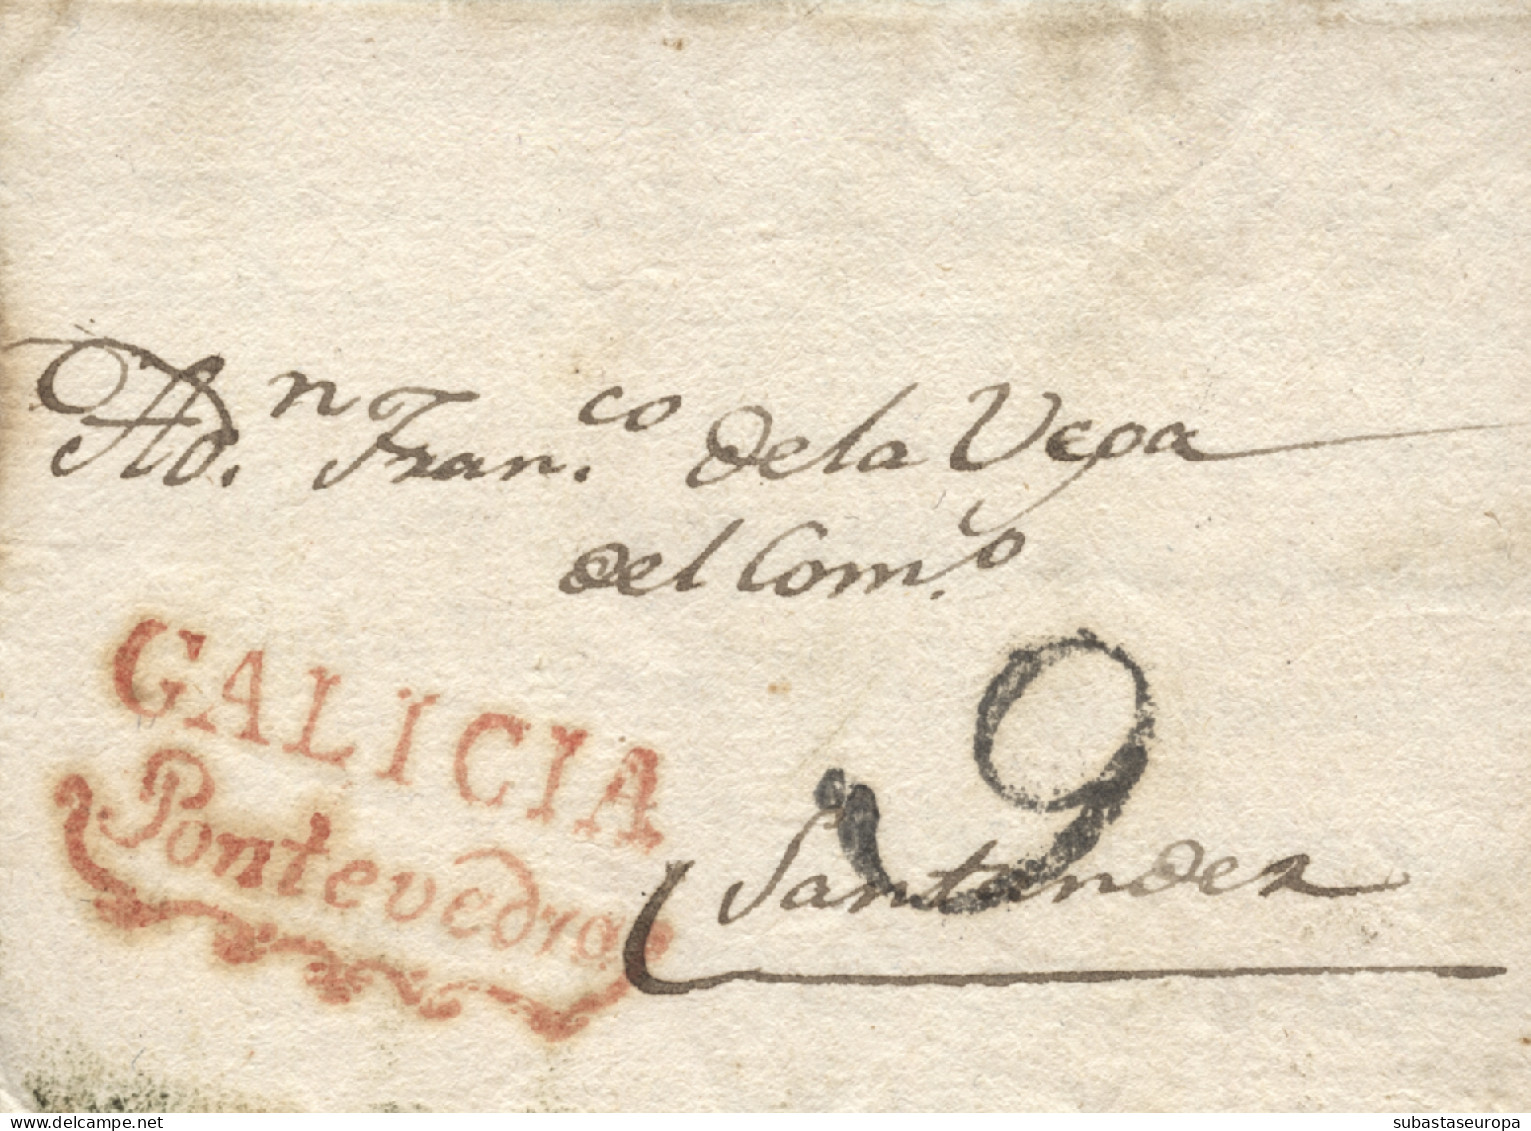 A D.n Fran.co de la Vega
del Com.o
GALICIA
Pontevedra
9
Santander
www.delcampe.net
subastaseuropa